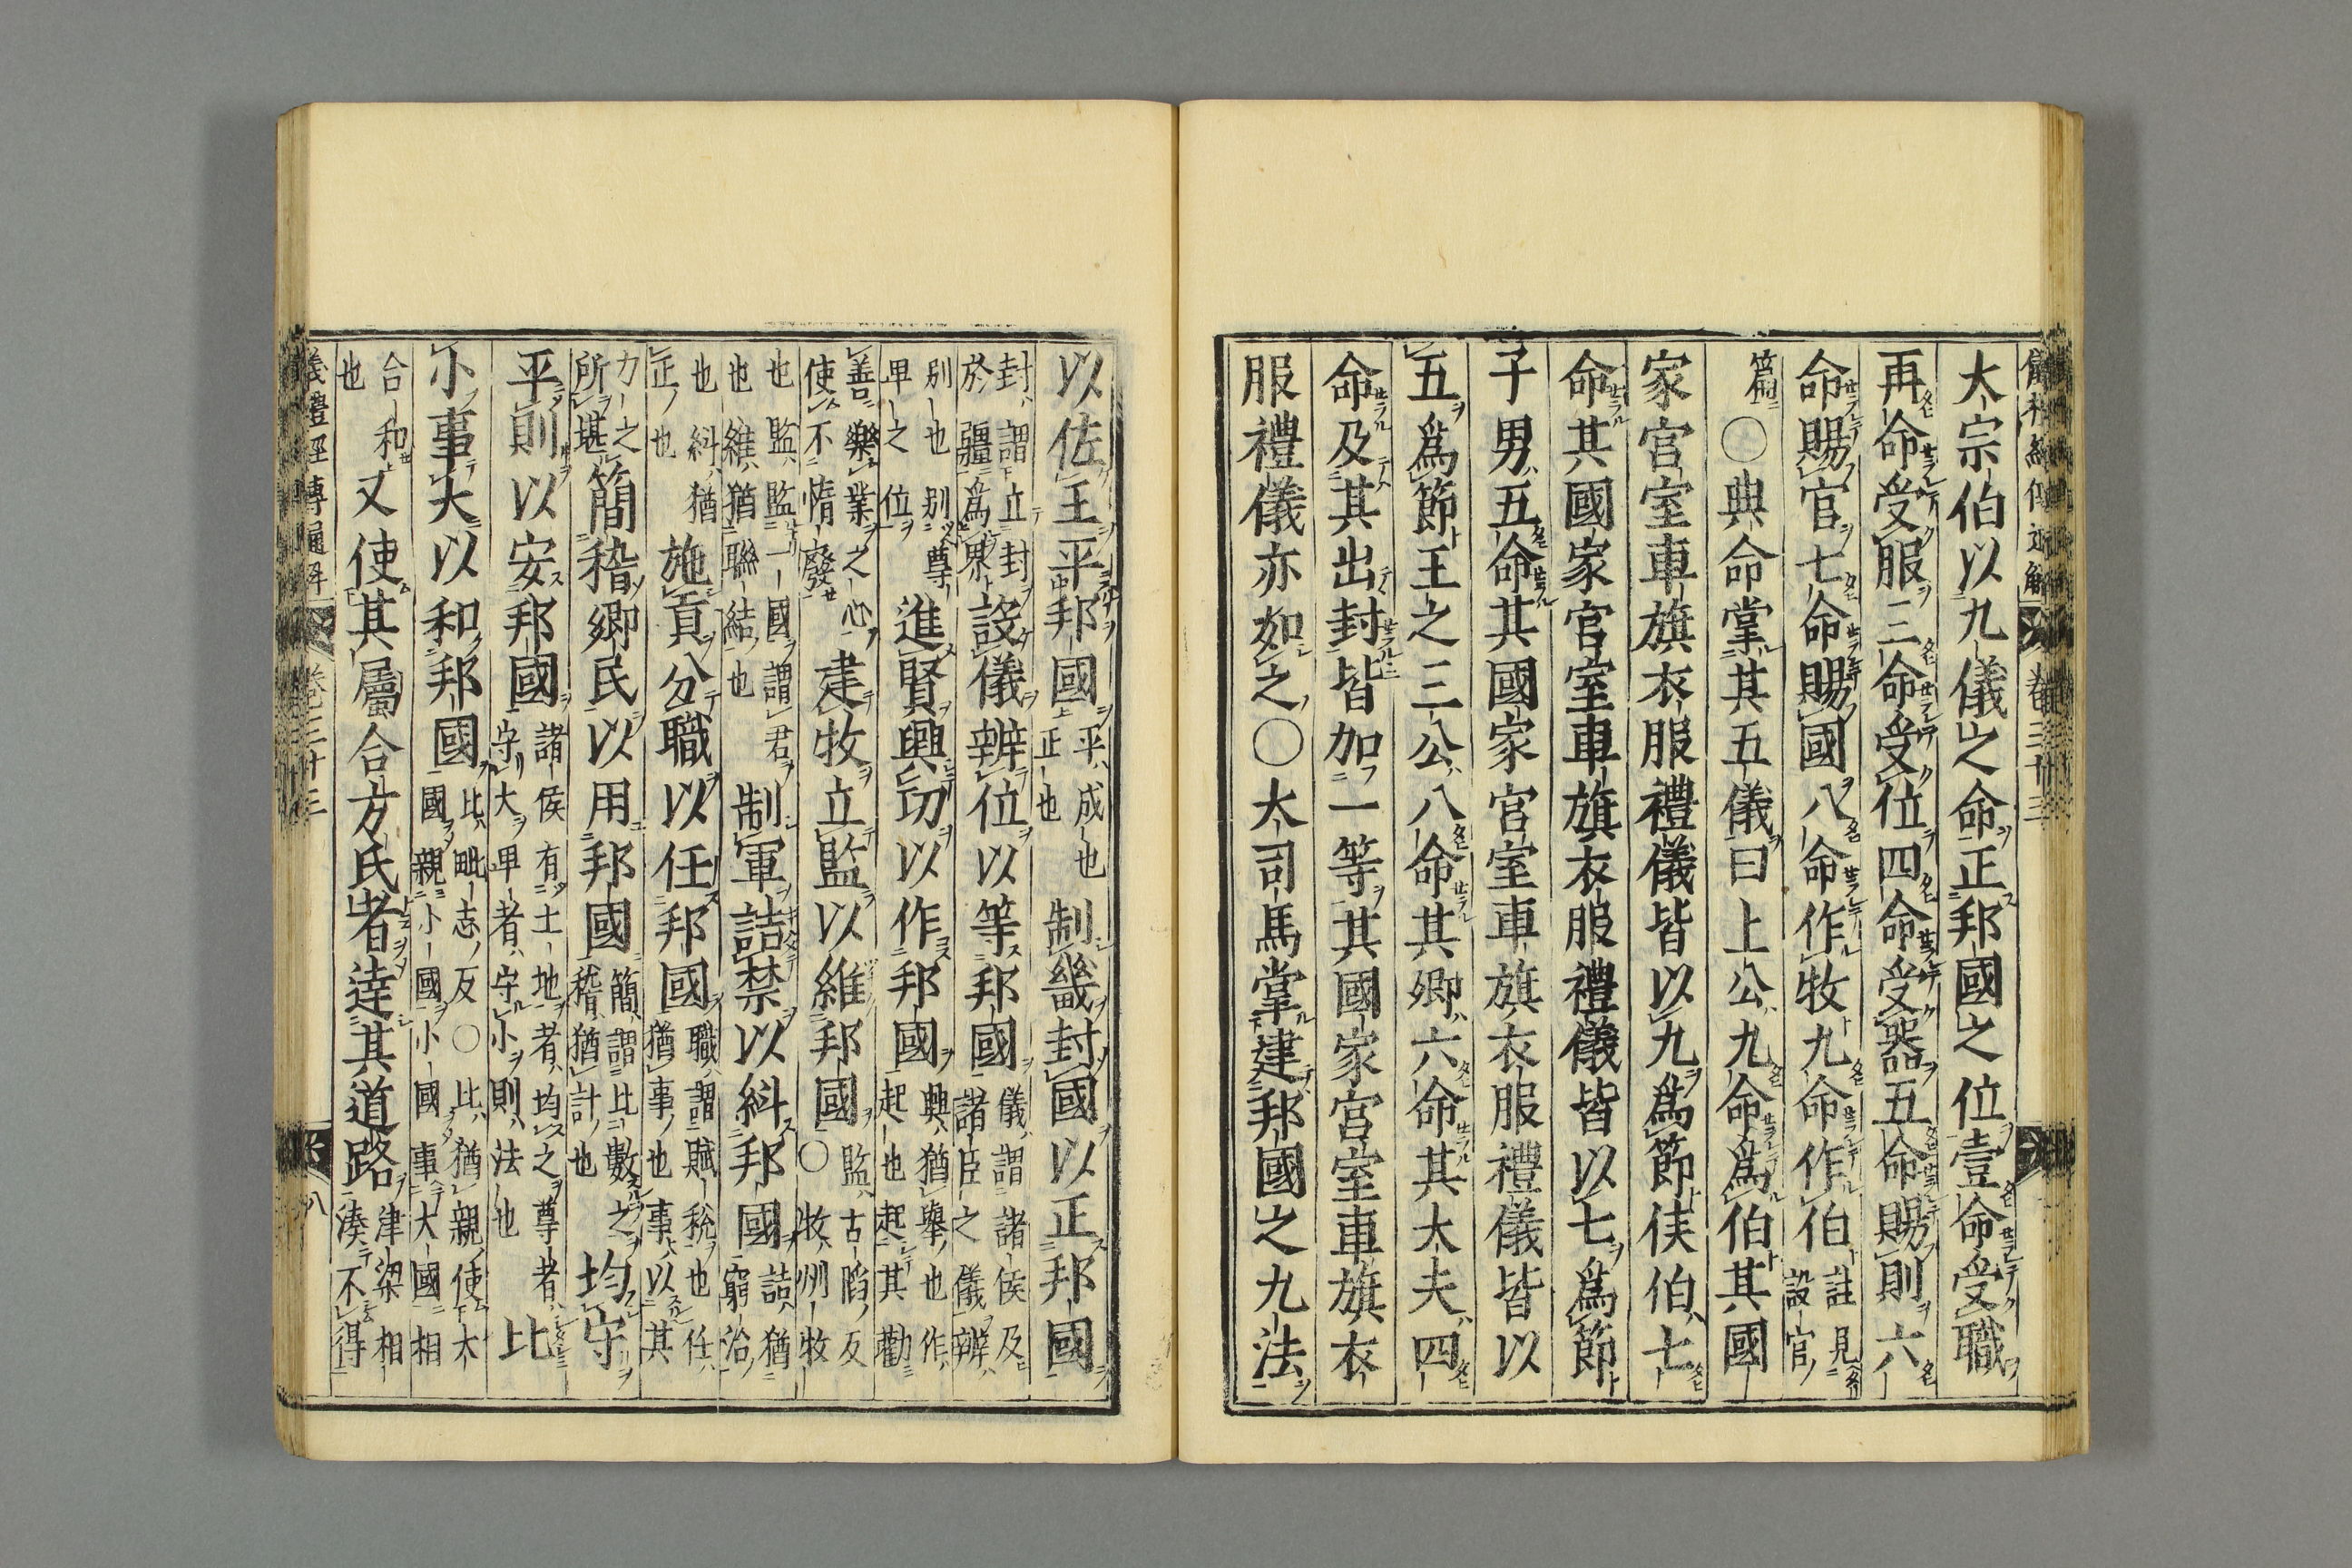 大宗伯以九儀之命正邦國之位壹命受職
再命受服三命受位四命受器五命賜則六
命賜官七命賜國八命作牧九命作伯註見設官
篇○典命掌其五儀曰上公九命爲伯其國
家宮室車旗衣服禮儀皆以九爲節侯伯七
命其國家宮室車旗衣服禮儀皆以七爲節
子男五命其國家宮室車旗衣服禮儀皆以
五爲節王之三公八命其卿六命其大夫四
命及其出封皆加一等其國家宮室車旗衣
服禮儀亦如之○大司馬掌建邦國之九法
以佐王平邦國平成也正也制畿封國以正邦國
封謂立封於疆爲界設儀辨位以等邦國儀謂諸侯及諸臣之儀辨
別也別尊卑之位進賢興功以作邦國興猶擧也作起也起其勸
善樂業之心使不惰廢建牧立監以維邦國監古陷反○牧州牧
也監監一國謂君也維猶聯結也制軍詰禁以糾邦國詰猶窮治
也糾猶正也施貢分職以任邦國職謂賦稅也任猶事也事以其
力之所堪簡稽鄉民以用邦國簡謂比數之稽猶計也均守
平則以安邦國諸侯有土地者均之尊者守大卑者守小則法也比
小事大以和邦國比毗志反○比猶親使大國親小國小國事大國相
合和也又使其屬合方氏者達其道路津梁相湊不得
儀禮經傳通解 卷三十三 八